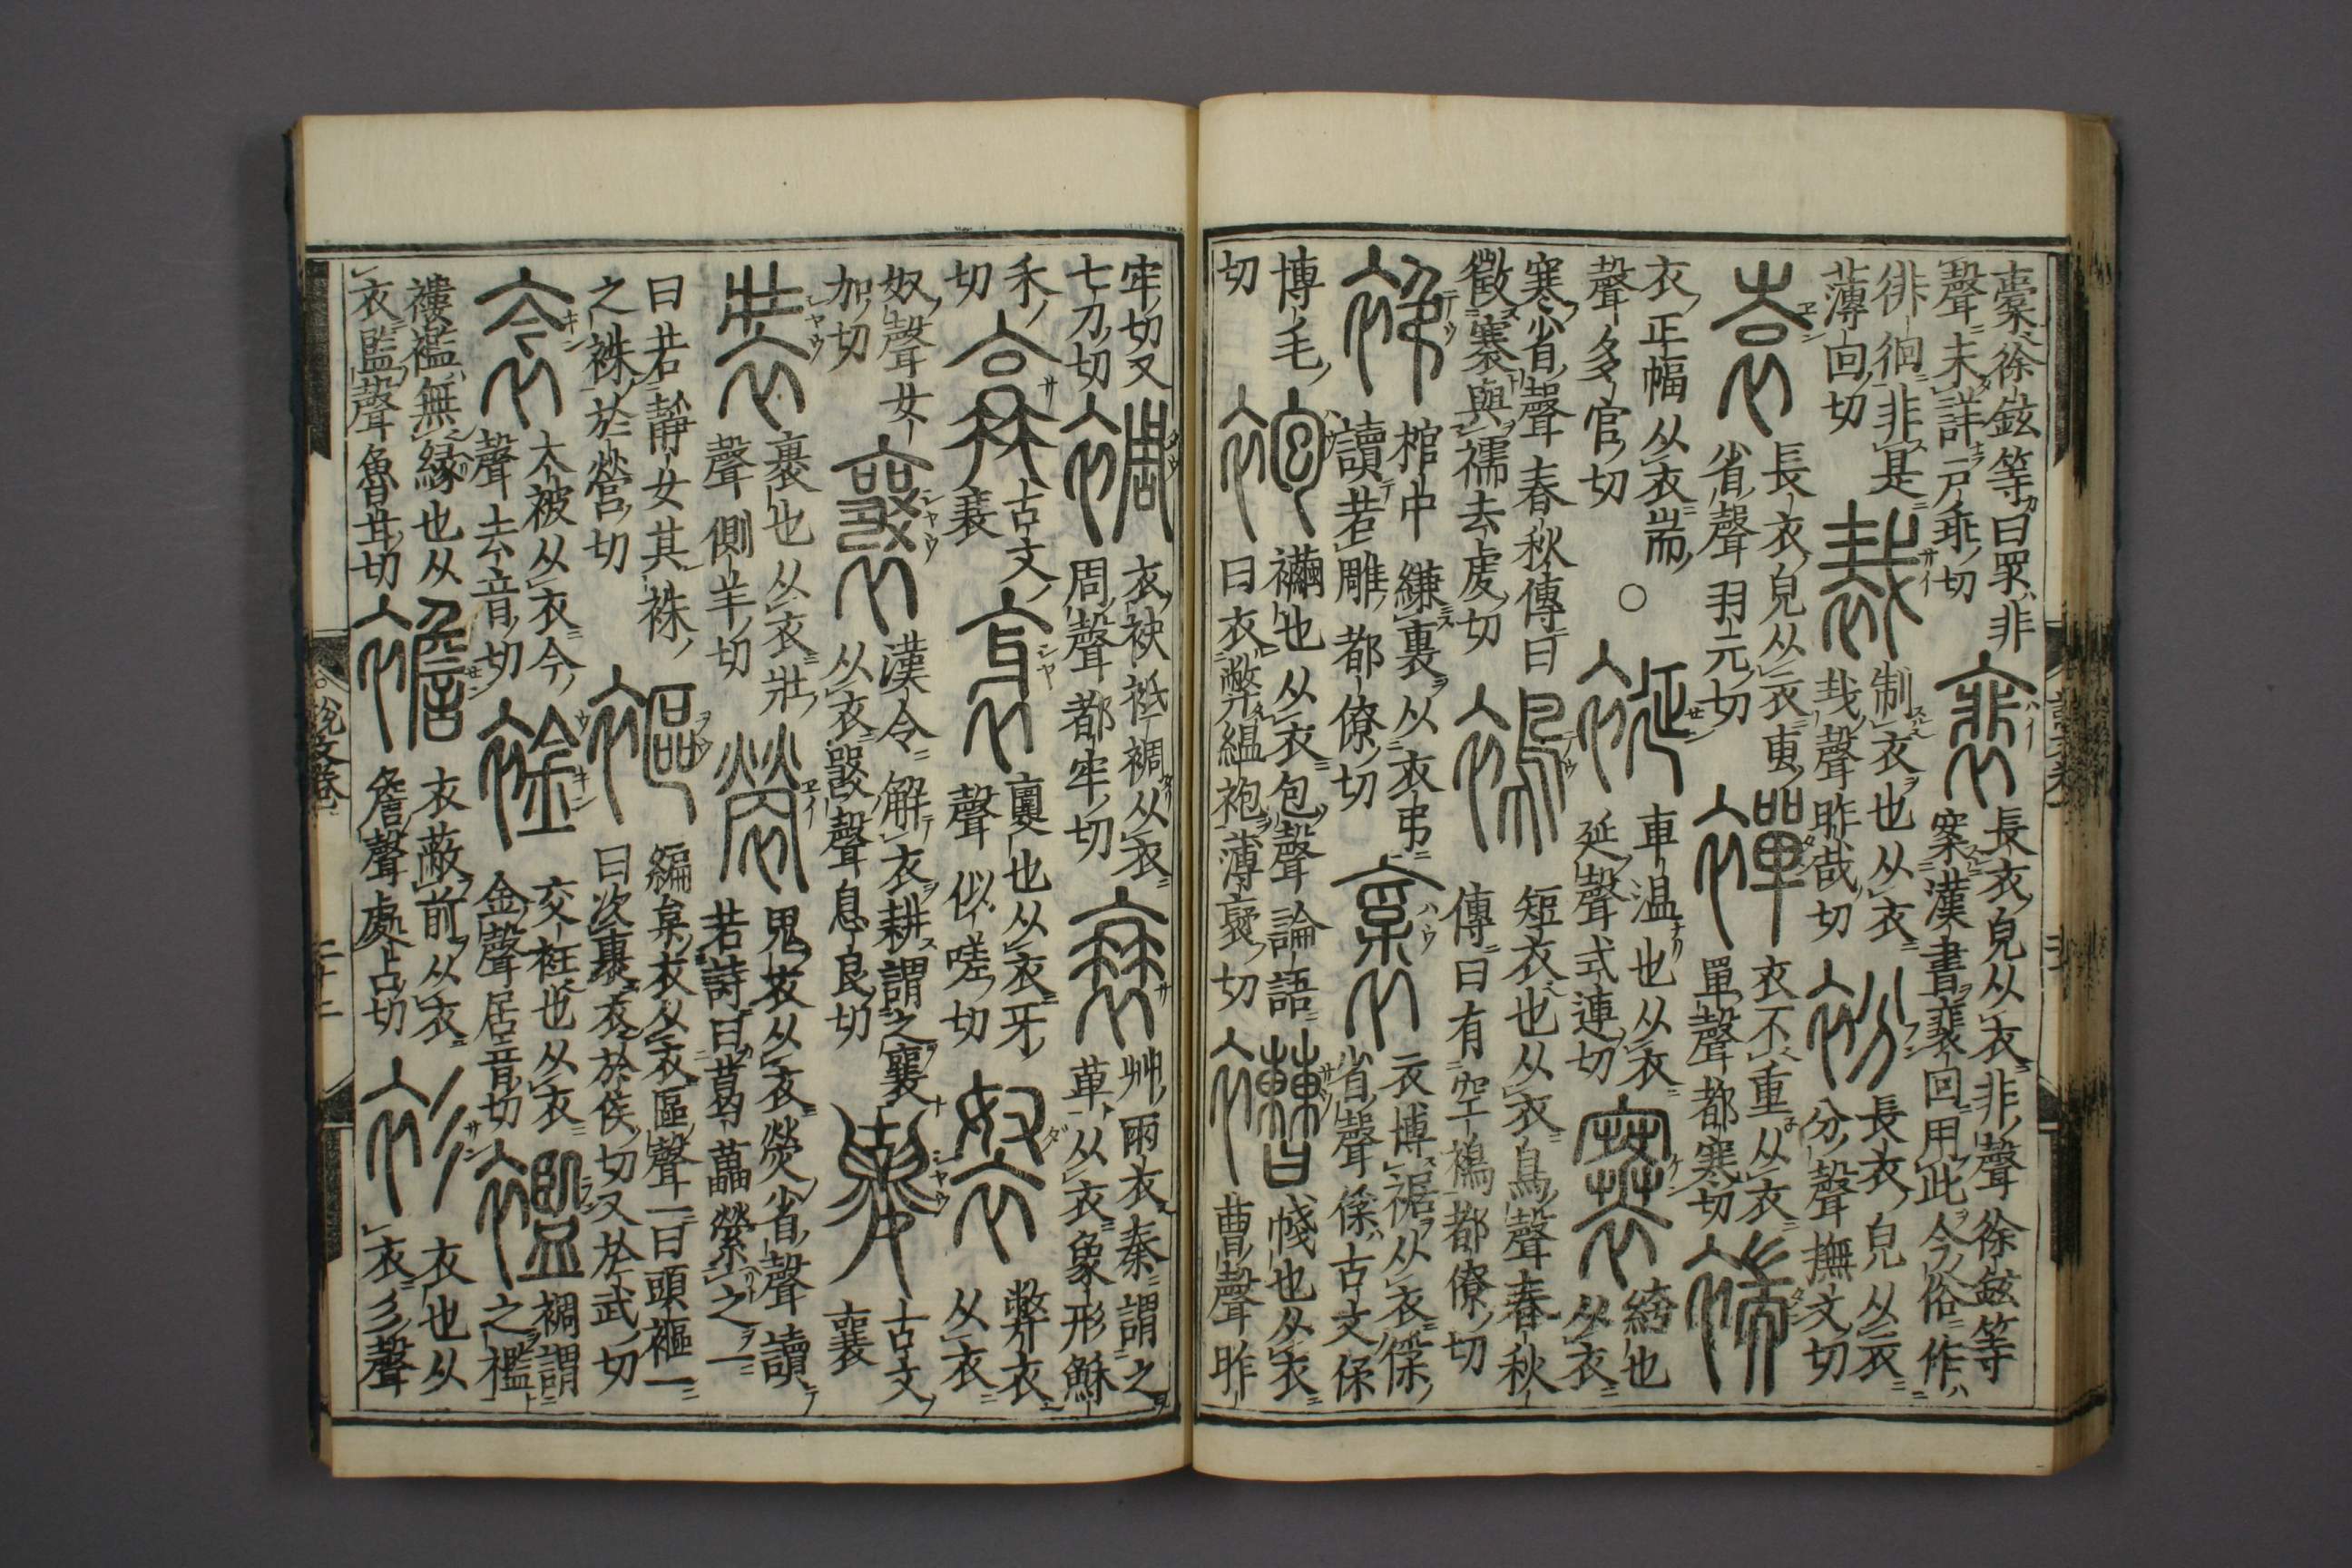 橐徐鉉等曰眾非
聲未詳戸乖切
裵
長衣皃从衣非聲徐鉉等
案漢書裵回用此今俗作
徘徊非是
薄回切
裁
制衣也从衣
𢦏聲昨哉切
衯
長衣皃从衣
分聲撫文切
袁
長衣皃从衣叀
省聲羽元切
襌
衣不重从衣
單聲都寒切
褍
衣正幅从衣耑
聲多官切
○
䘰
車温也从衣
延聲式連切
褰
絝也
从衣
寒省聲春秋傳曰
徵褰與襦去虔切
䙚
短衣也从衣鳥聲春秋
傳曰有空䙚都僚切
棺中縑裏从衣弔
讀若雕都僚切
褒
衣博裾从衣𠈃
省聲𠈃古文保
博毛
切
袍
襺也从衣包聲論語
曰衣弊緼袍薄褒切
褿
帴也从衣
曹聲昨
牢切又
七刀切
裯
衣袂祗裯从衣
周聲都牢切
衰
艸雨衣秦謂之
萆从衣象形穌
禾
切
古文
衰
衺
也从衣牙
聲似嗟切
袈
弊衣
从衣
奴聲女
加切
襄
漢令解衣耕謂之襄
从衣𤕦聲息良切
古文
襄
裝
裹也从衣壯
聲側羊切
褮
鬼衣从衣熒省聲讀
若詩曰葛藟縈之一
曰若靜女其袾
之袾於營切
褔
編枲衣从衣區聲一曰頭褔一
曰次裹衣於侯切又於武切
衾
大被从衣今
聲去音切
䘳
交衽也从衣
金聲居音切
襤
裯謂
之襤
褸襤無緣也从
衣監聲魯甘切
襜
衣蔽前从衣
詹聲處占切
衫
衣也从
衣彡聲
説文卷
二十二